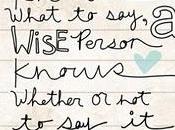 What to say, a
WiSE PERSON
Knows
Whether or not
to say it